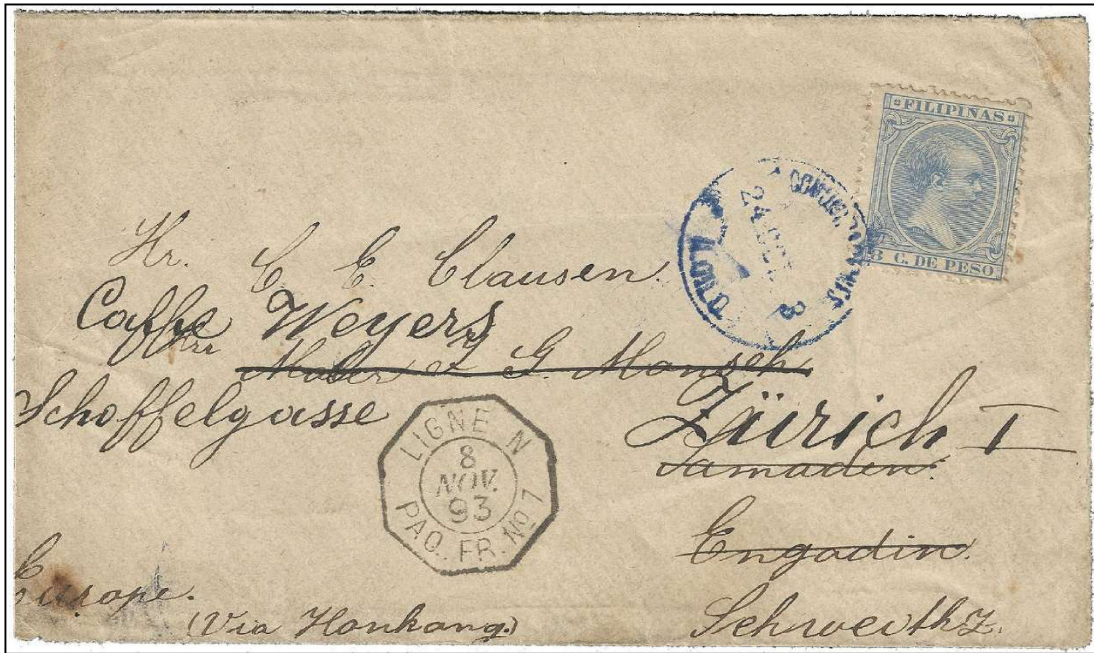 FILIPINAS
8 C. DE PESO
24 OCT
ILOILO
Hr. C. E. Clausen.
Caffe Weyers
Schoffelgasse
Zürich I
Samaden.
Engadin.
Schweithz.
LIGNE N
8
NOV.
93
PAQ. FR. Nº 7
Europe.
(Via Honkong.)